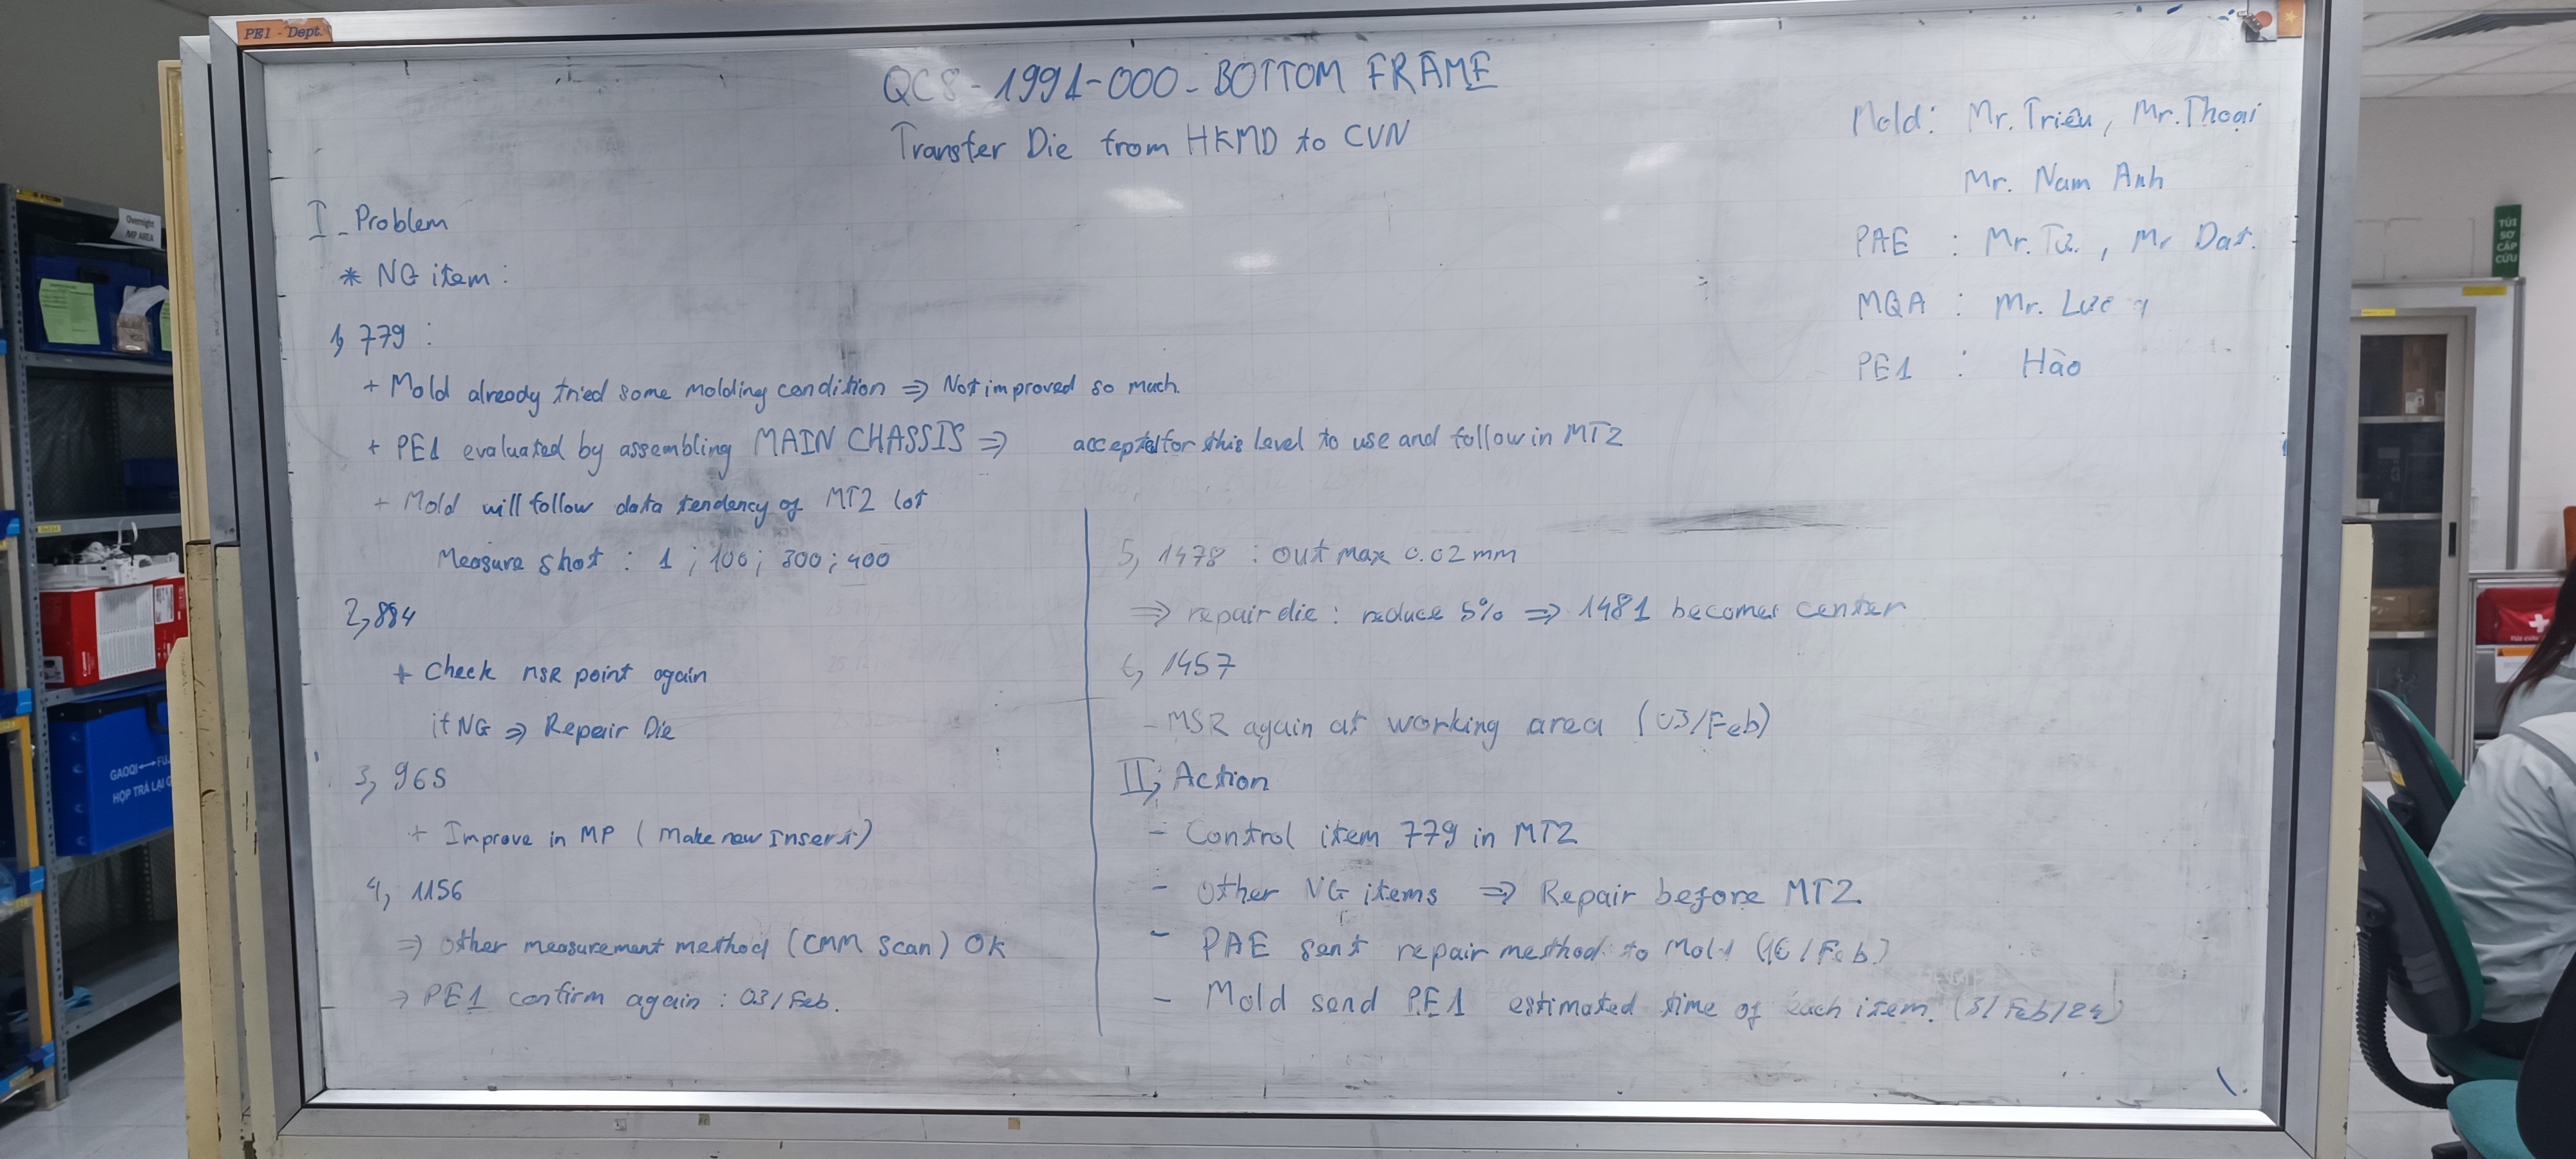 PE1 - Dept.
QC8-1991-000-BOTTOM FRAME
Transfer Die from HKMD to CVN
Mold: Mr. Triều, Mr. Thoại
Mr. Nam Anh
PAE : Mr. Tú, Mr Dat.
MQA : Mr.
PE1 : Hào
I_Problem
* NG item:
1, 779 :
+ Mold already tried some molding condition ⇒ Not improved so much.
+ PE1 evaluated by assembling MAIN CHASSIS ⇒ accepted for this level to use and follow in MT2
+ Mold will follow data tendency of MT2 lot
Measure shot : 1 ; 100 ; 300 ; 400
2, 884
+ Check MSR point again
if NG ⇒ Repair Die
3, 965
+ Improve in MP (Make new Insert)
4, 1156
⇒ Other measurement method (CMM Scan) OK
→ PE1 confirm again : 03/Feb.
5, 1478 : out max 0.02mm
⇒ repair die : reduce 5% ⇒ 1481 becomes center
6, 1457
- MSR again at working area (03/Feb)
II, Action
- Control item 779 in MT2
- Other NG items ⇒ Repair before MT2
- PAE sent repair method to Mold
- Mold send PE1 estimated time of each item. (3/Feb/24)
Overnight
MP AREA
GAOQI
HỘP TRẢ LẠI
TÚI
SƠ
CẤP
CỨU